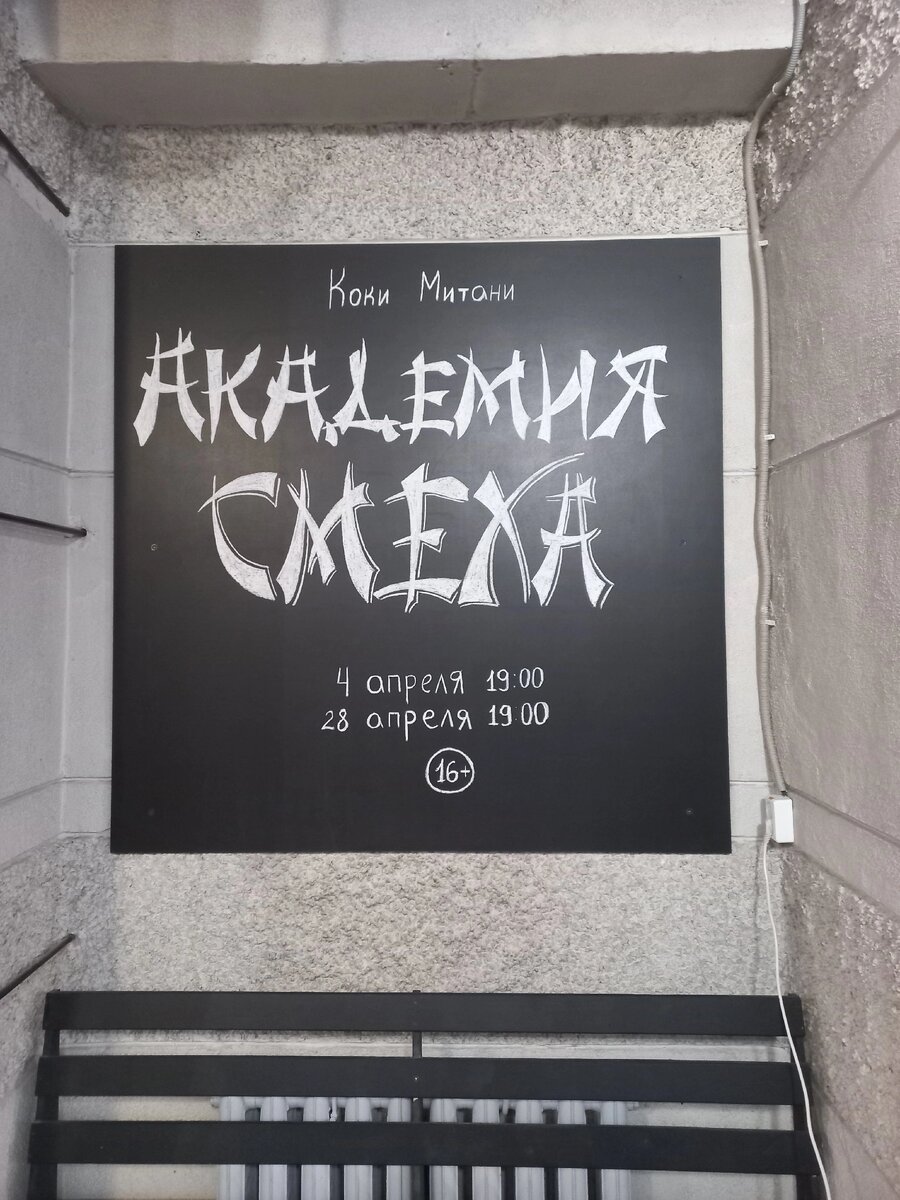 Коки Митани
Академия
смеха
4 апреля 19:00
28 апреля 19:00
16+